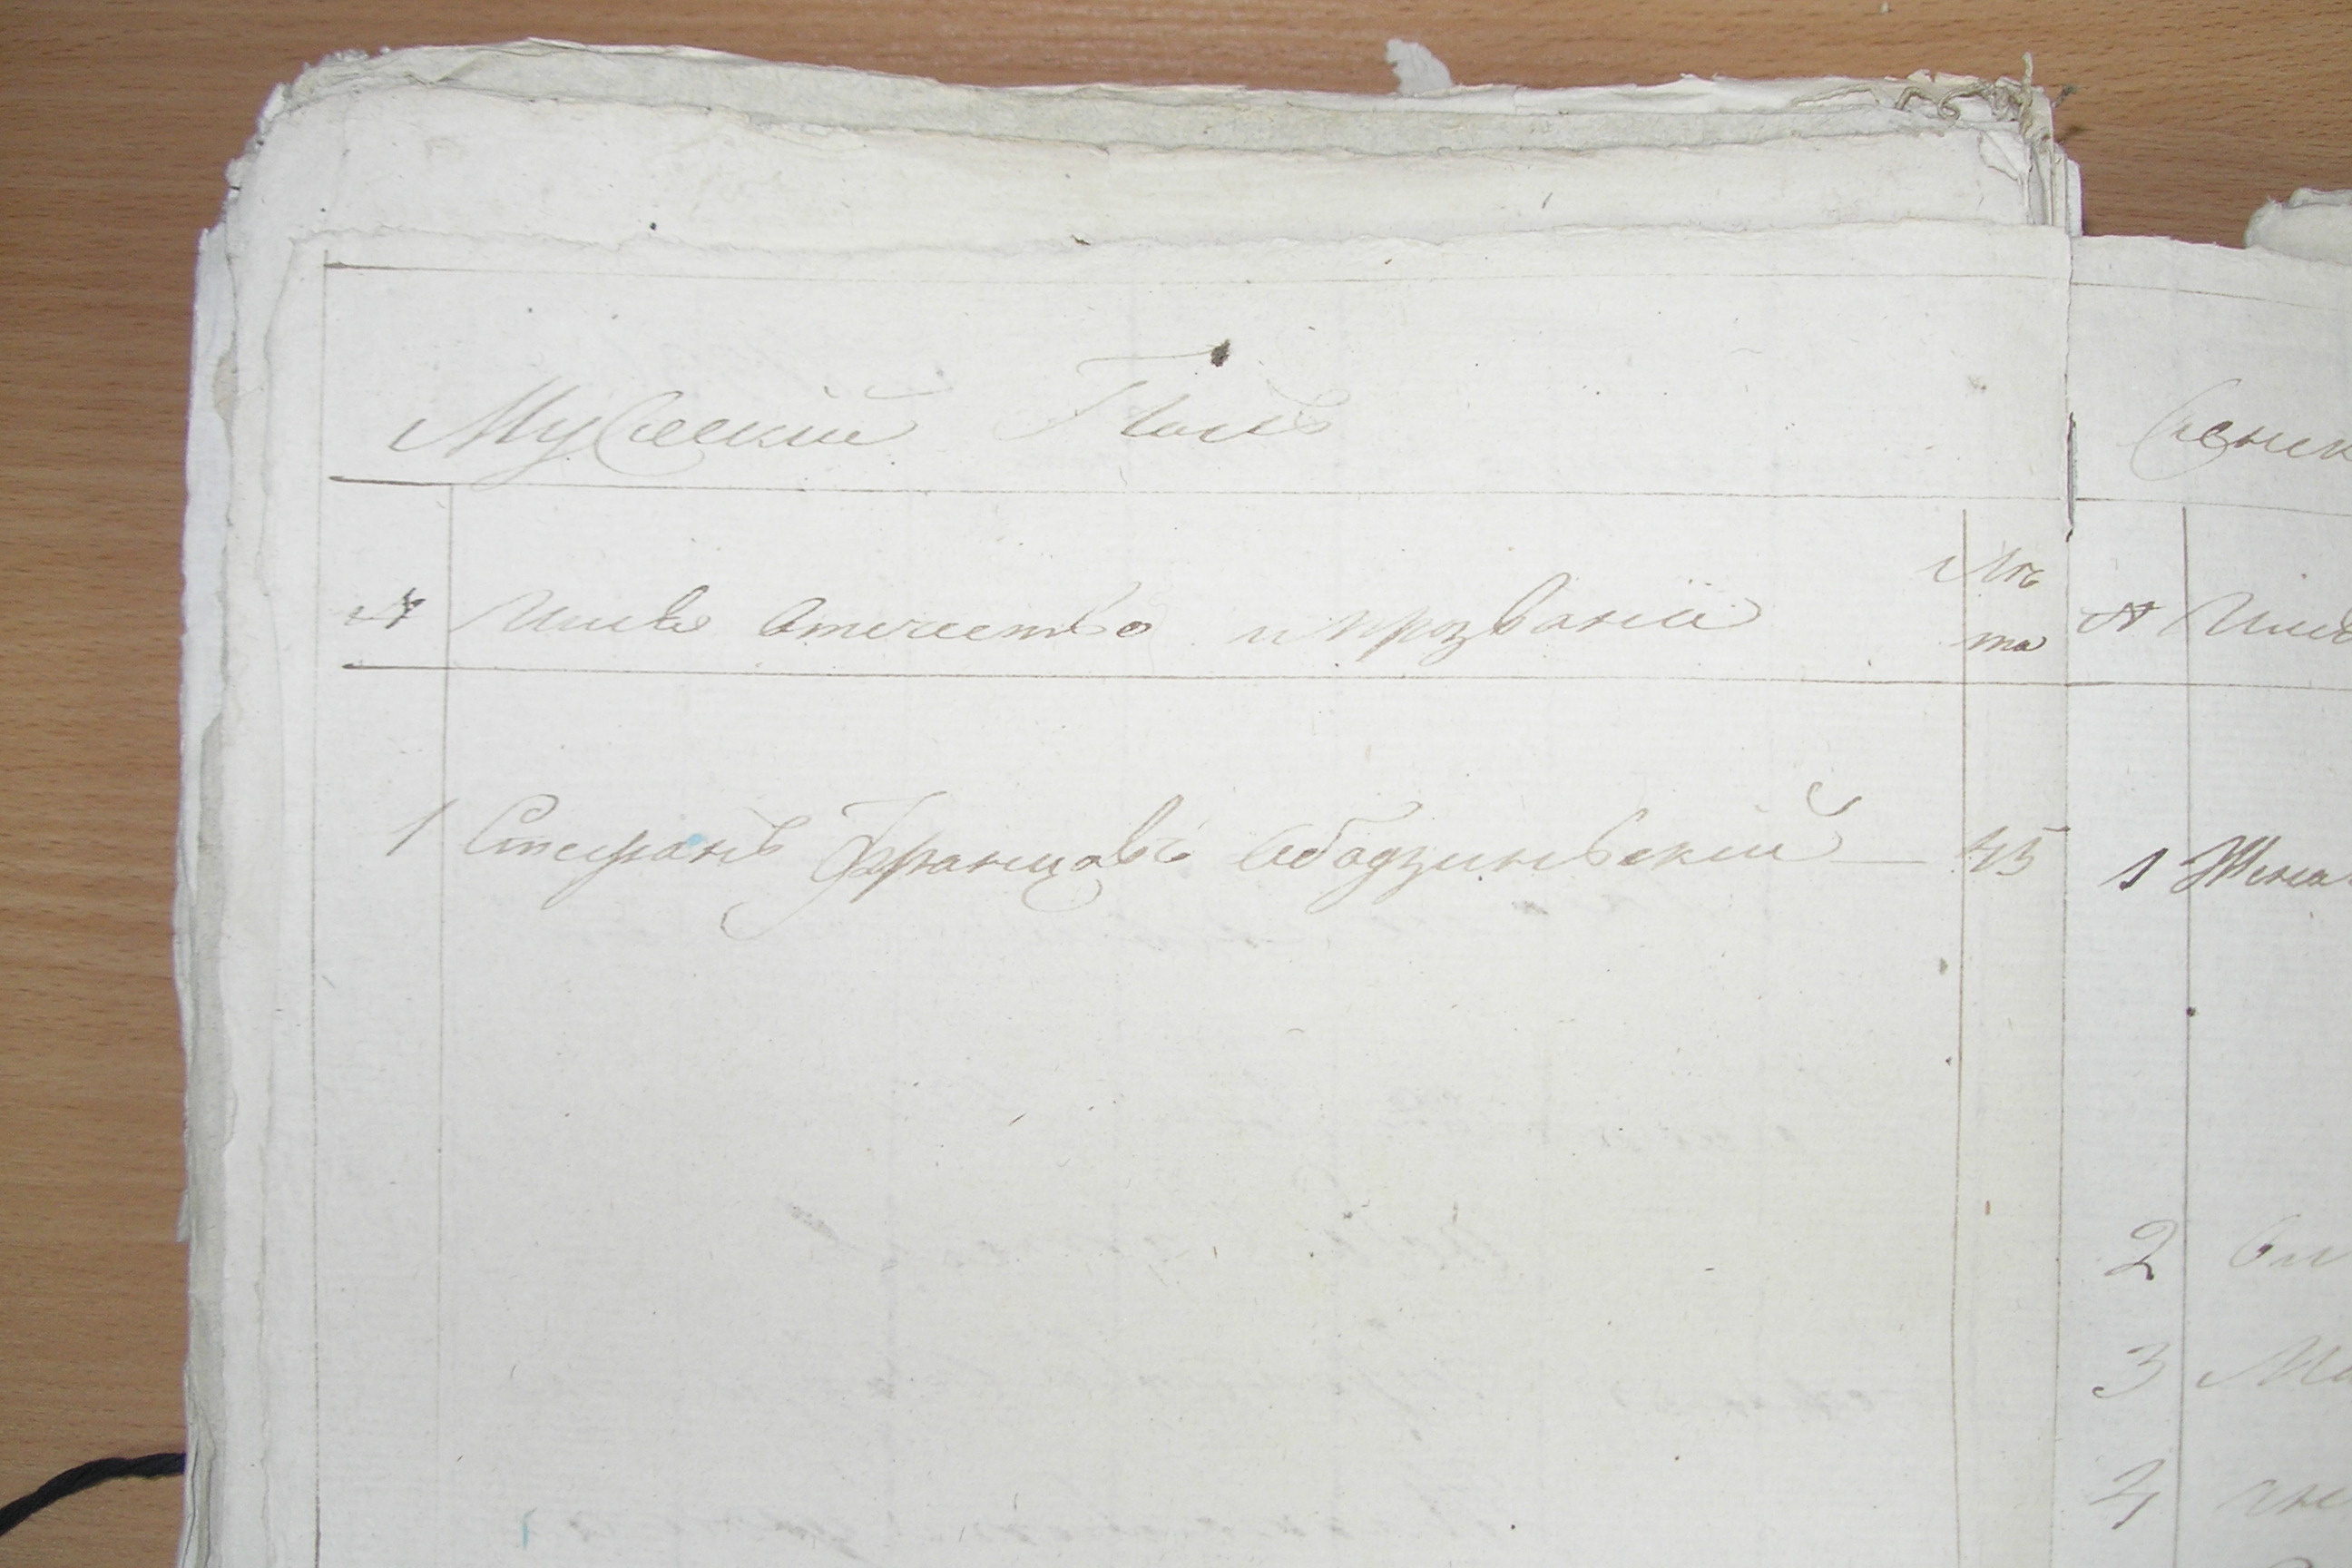 Мужеский Полъ
№ Имя Отечество и прозвание Лѣ та
1 Стефанъ Францовъ Ободзинский 45
Женск
№ Имя
1 Жена
2
3
4